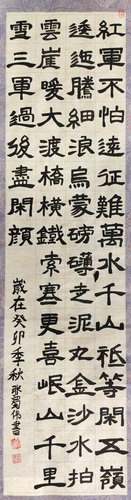 紅軍不怕遠征難萬水千山祗等閑五嶺
逶迤騰細浪烏蒙磅礴走泥丸金沙水拍
雲崖暖大渡橋橫鐵索寒更喜岷山千里
雪三軍過後盡開顏
歲在癸卯季秋 書